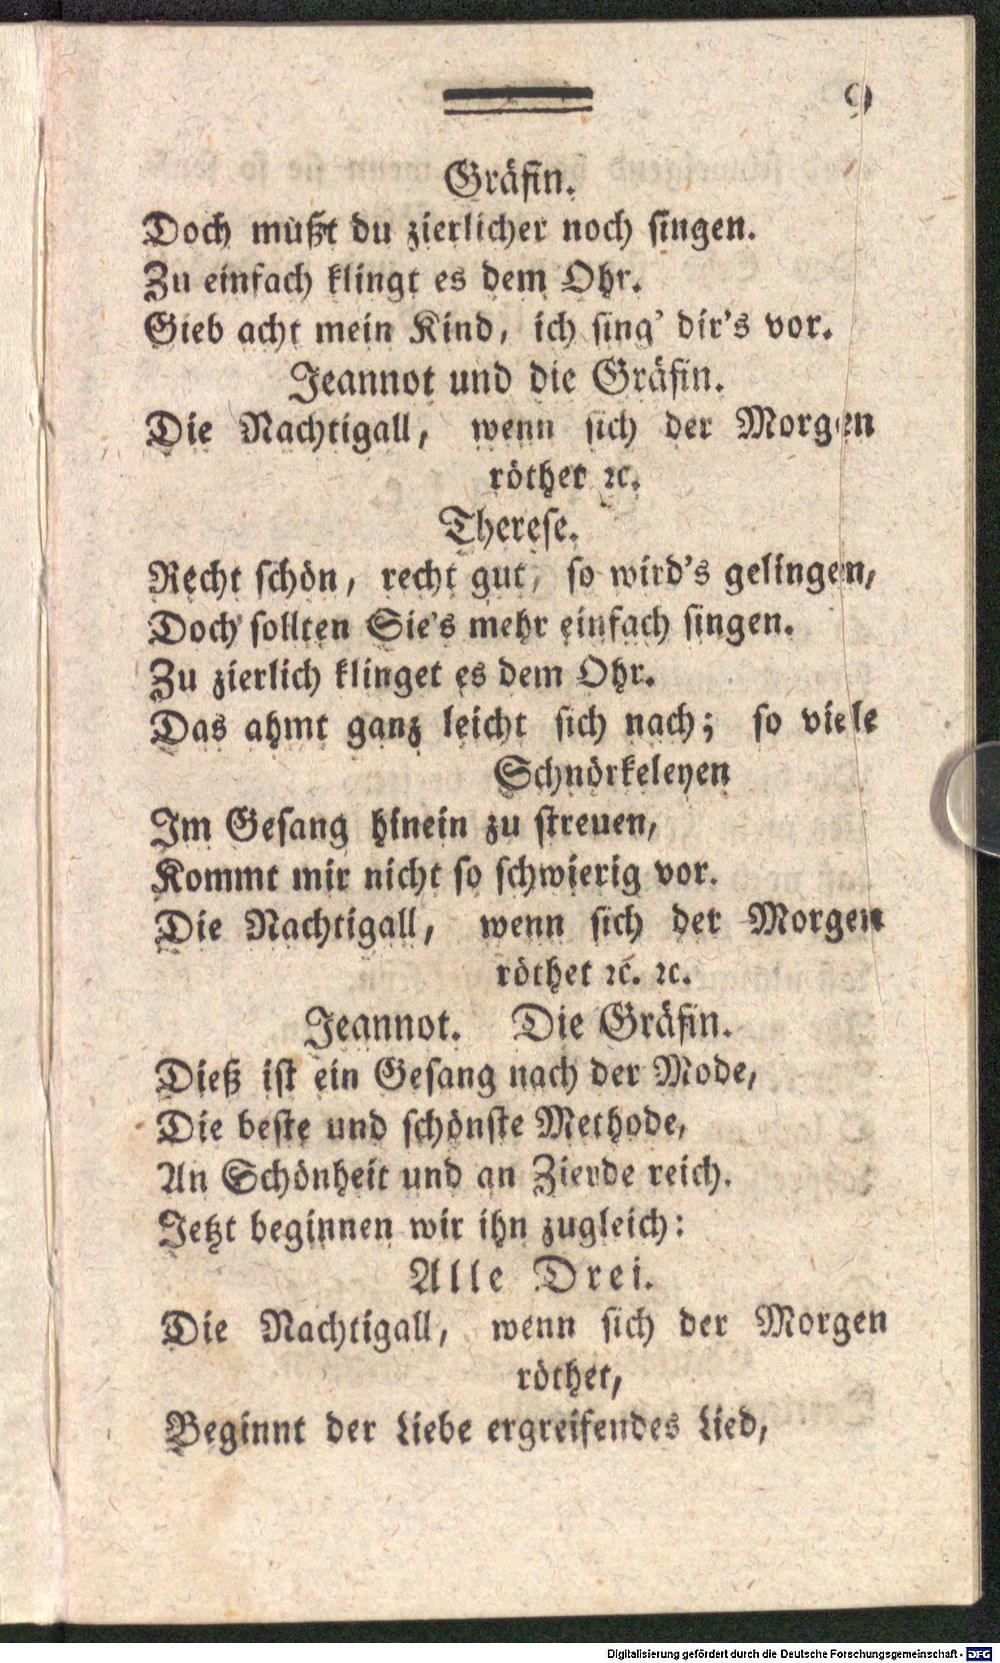 9
Gräfin.
Doch mußt du zierlicher noch singen.
Zu einfach klingt es dem Ohr.
Gieb acht mein Kind, ich sing' dir's vor.
Jeannot und die Gräfin.
Die Nachtigall, wenn sich der Morgen
röthet ꝛc.
Therese.
Recht schön, recht gut, so wird's gelingen,
Doch sollten Sie's mehr einfach singen.
Zu zierlich klinget es dem Ohr.
Das ahmt ganz leicht sich nach; so viele
Schnörkeleyen
Im Gesang hinein zu streuen,
Kommt mir nicht so schwierig vor.
Die Nachtigall, wenn sich der Morgen
röthet ꝛc. ꝛc.
Jeannot. Die Gräfin.
Dieß ist ein Gesang nach der Mode,
Die beste und schönste Methode,
An Schönheit und an Zierde reich.
Jetzt beginnen wir ihn zugleich:
Alle Drei.
Die Nachtigall, wenn sich der Morgen
röthet,
Beginnt der Liebe ergreifendes Lied,
Digitalisierung gefördert durch die Deutsche Forschungsgemeinschaft - DFG